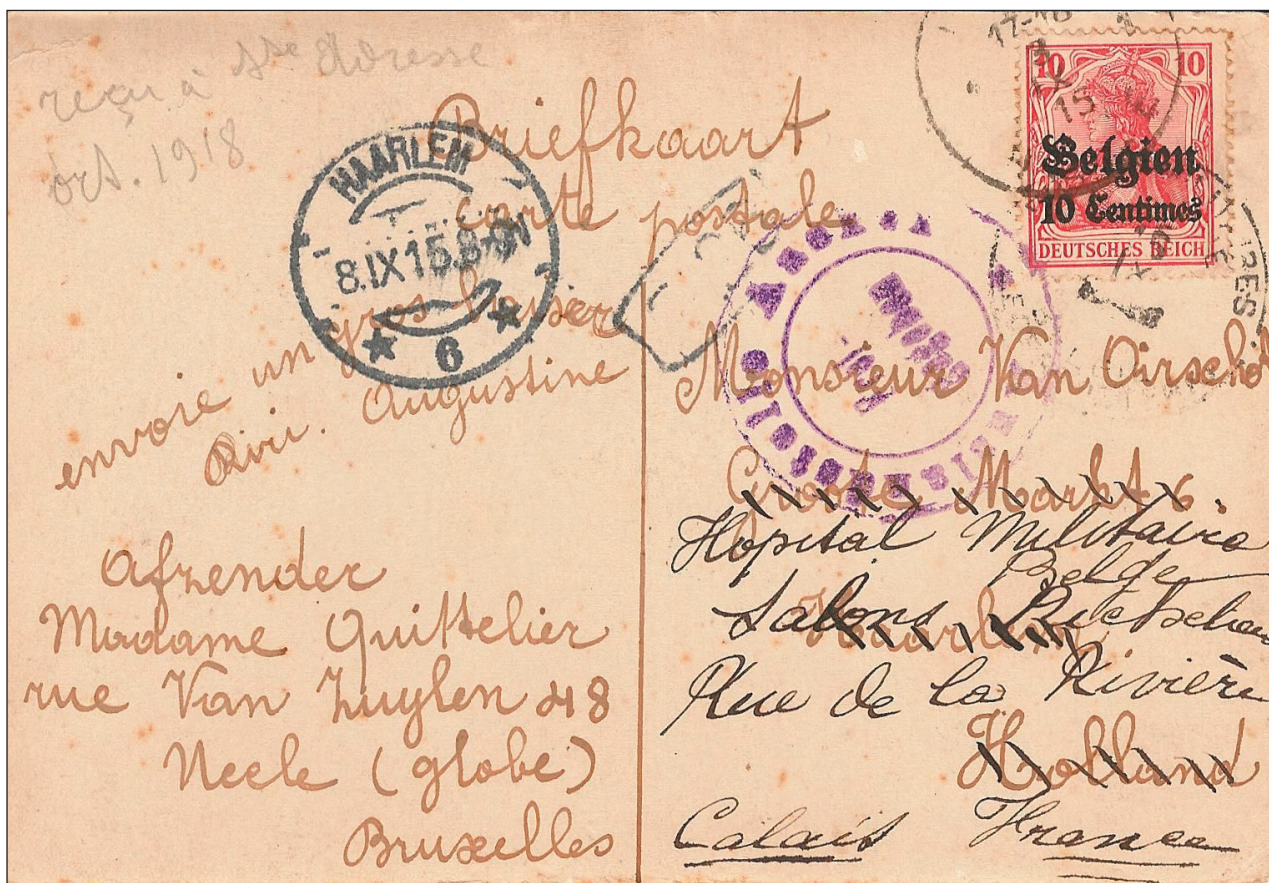 reçu à Ste Adresse
oct. 1918
Briefkaart
carte postale
HAARLEM
8.IX15.8-9V
6
10 10
Belgien
10 Centimes
DEUTSCHES REICH
envoie un gros baiser
Augustine
Afzender
Madame Quittelier
rue Van Zuylen 48
Neele (globe)
Bruxelles
Monsieur Van Oirschot
Groote Markt 6.
Hopital Militaire
Belge
Salons Richelieu
Haarlem
Rue de la Rivière
Holland
Calais France